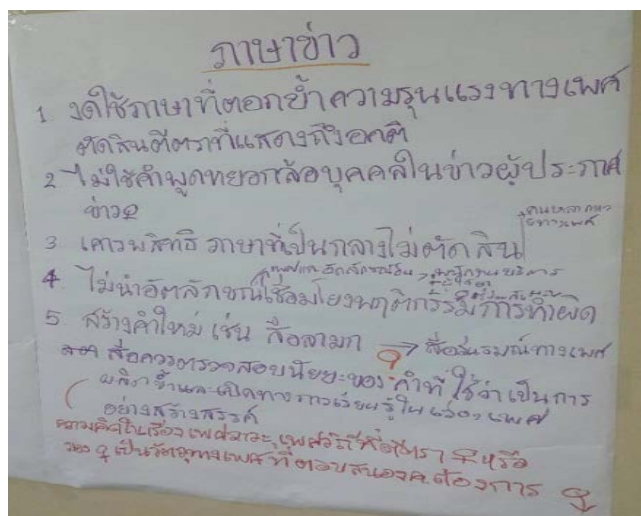 ภาษาข่าว
1 งดใช้ภาษาที่ตอกย้ำความรุนแรงทางเพศ
ตัดสินตีตราที่แสดงถึงอคติ
2 ไม่ใช้คำพูดหยอกล้อบุคคลในข่าวผู้ประกาศ
ข่าว
3 เคารพสิทธิ ภาษาที่เป็นกลางไม่ตัดสิน
4 ไม่นำอัตลักษณ์เชื่อมโยงพฤติกรรมการทำผิด
5 สร้างคำใหม่ เช่น สื่อลามก → สื่ออารมณ์ทางเพศ
สื่อควรตรวจสอบนัยยะของคำที่ใช้ว่าเป็นการ
ผลิตซ้ำและเปิดทางการเรียนรู้ในเรื่องเพศ
อย่างสร้างสรรค์
ความคิดในเรื่องเพศภาวะ, เพศวิถีที่ตีตรา หรือ
มอง ♀ เป็นวัตถุทางเพศที่ตอบสนองค.ต้องการ